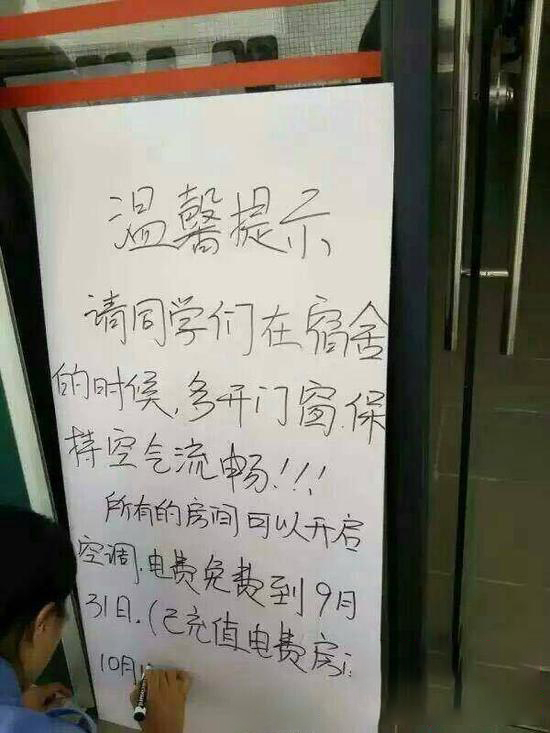 温馨提示
请同学们在宿舍
的时候,多开门窗.保
持空气流畅!!!
所有的房间可以开启
空调.电费免费到9月
31日.(已充值电费房
10月1